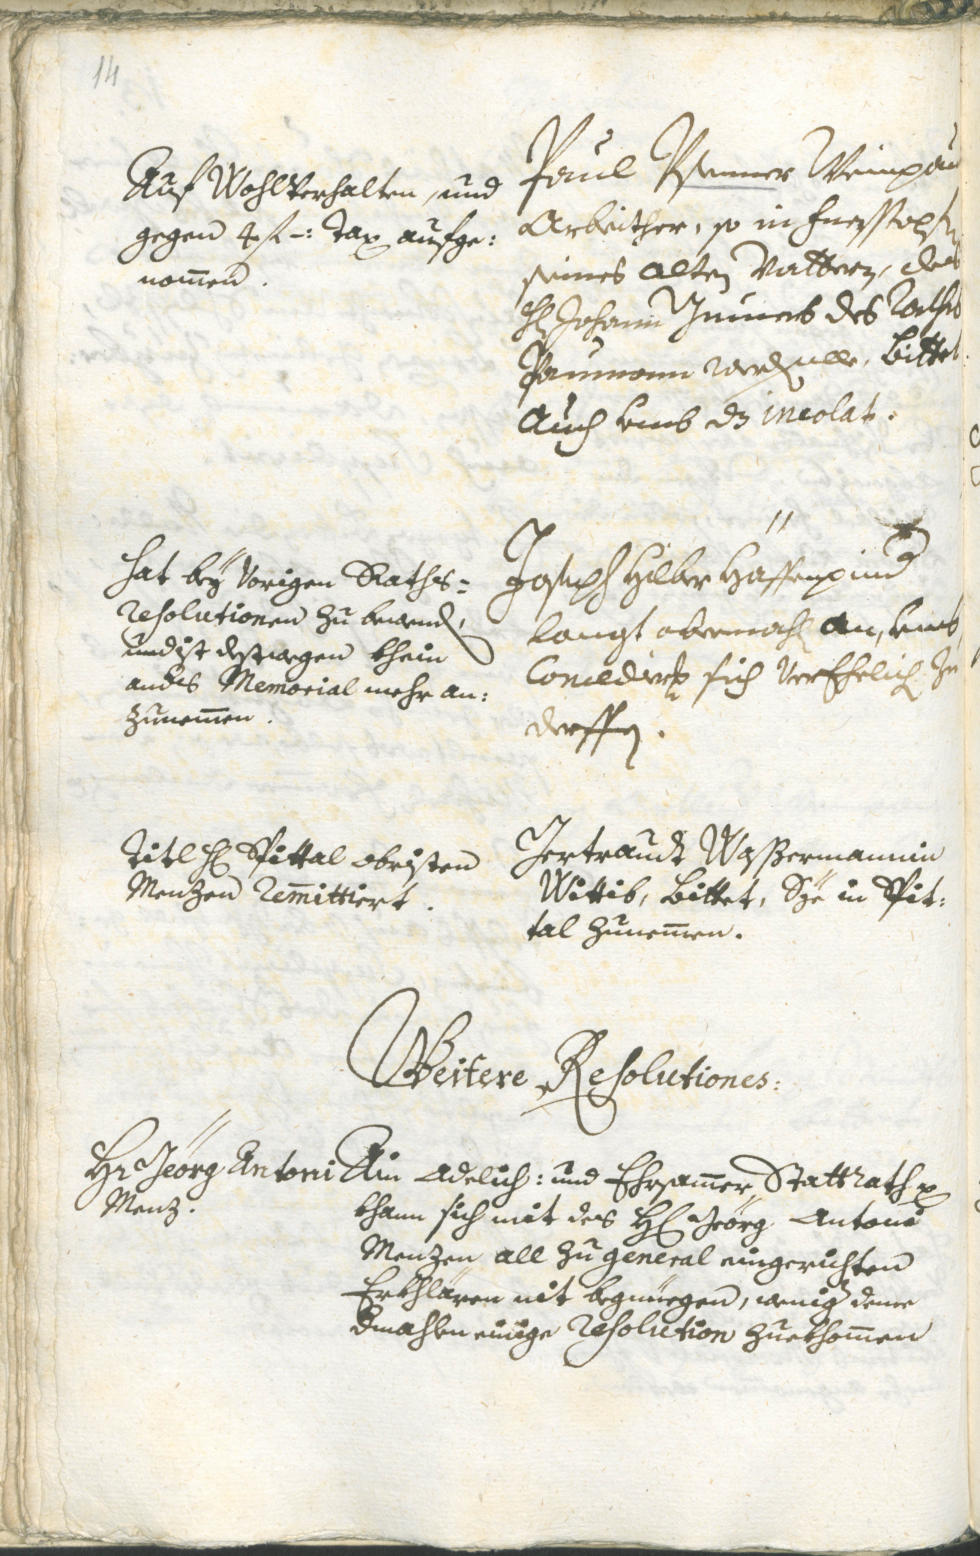 14
Auf Wohlverhalten, und
gegen 4 f –: Tax aufge:
nom̄en.
Paul
Arbeither, so in
seines alten Vattern, des
H Johann des Raths
Paumann werden wolle, bittet
Auch umb dz incolat.
hat bey Vorigen Raths=
resolutionen zu bewenden,
und ist destwegen khein
anders Memorial mehr an:
zunem̄en.
Joseph Hilber
langt abermahl an, umb
sich Verehelichen zu
derffen.
Titl H Spittal obristen
Menzen Remittiert.
Gertraudt Wassermannin
Wittib, bittet, Sye in Spit:
tal zunem̄en.
Weitere Resolutiones:
Hr Jeörg Antoni
Menz.
Ain Adelich: und Ehrsamer StattRath
khann sich mit des H Jeörg Antoni
Menzen all zu general eingerichten
Erkhlären nit begnüegen, wenig deme
dmahlen einige resolution zuekhom̄en